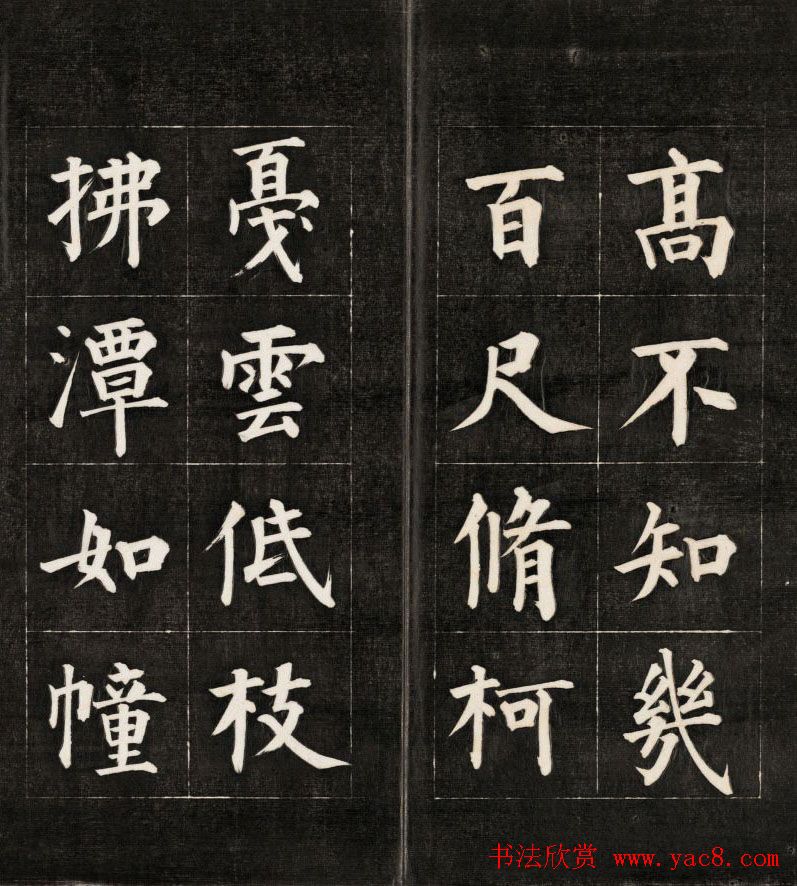 高不知幾
百尺脩柯
戛雲低枝
拂潭如幢
书法欣赏 www.yac8.com